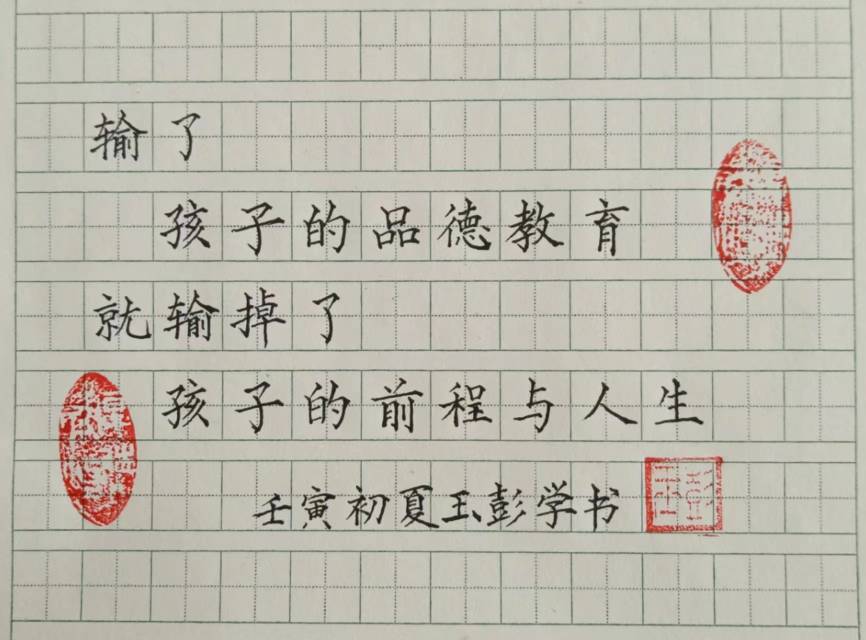 输了
孩子的品德教育
就输掉了
孩子的前程与人生
壬寅初夏王彭学书